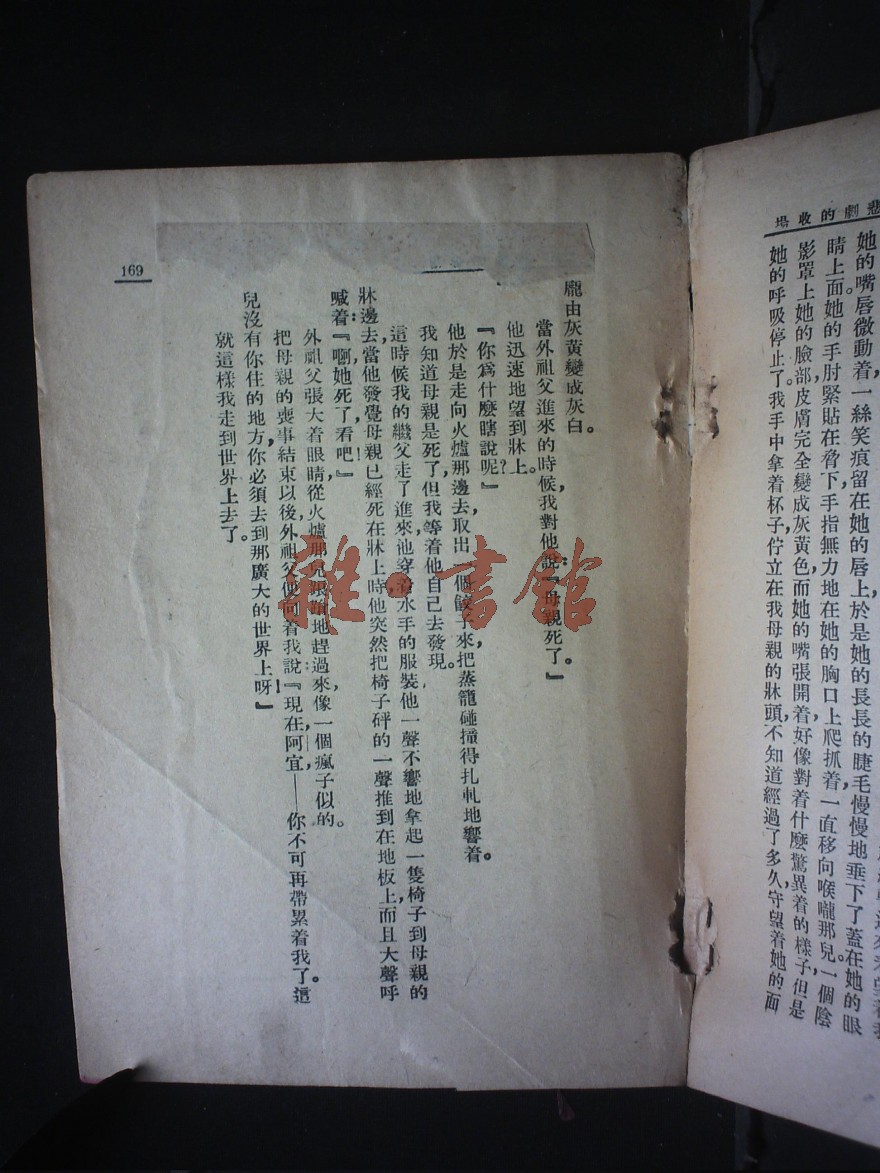 悲劇的收場
她的嘴唇微動着，一絲笑痕留在她的唇上，於是她的長長的睫毛慢慢地垂下了，蓋在她的眼
睛上面。她的手肘緊貼在脅下，手指無力地在她的胸口上爬抓着，一直移向喉嚨那兒。一個陰
影罩上她的臉部，皮膚完全變成灰黃色，而她的嘴張開着，好像對着什麼驚異着的樣子，但是
她的呼吸停止了。我手中拿着杯子，佇立在我母親的牀頭，不知道經過了多久，守望着她的面
龐由灰黃變成灰白。
當外祖父進來的時候，我對他說：『母親死了。』
他迅速地望到牀上。
『你爲什麼瞎說呢？』
他於是走向火爐那邊去，取出一個餃子來，把蒸籠碰撞得扎軋地響着。
我知道母親是死了，但我等着他自己去發現。
這時候我的繼父走了進來，他穿着水手的服裝，他一聲不響地拿起一隻椅子到母親的
牀邊去，當他發覺母親已經死在牀上時，他突然把椅子砰的一聲推到在地板上，而且大聲呼
喊着：『啊，她死了！看吧！』
外祖父張大着眼睛從火爐那兒踉蹌地趕過來，像一個瘋子似的。
把母親的喪事結束以後，外祖父便向着我說：『現在，阿宜——你不可再帶累着我了。這
兒沒有你住的地方，你必須去到那廣大的世界上呀！』
就這樣我走到世界上去了。
169
雜·書館